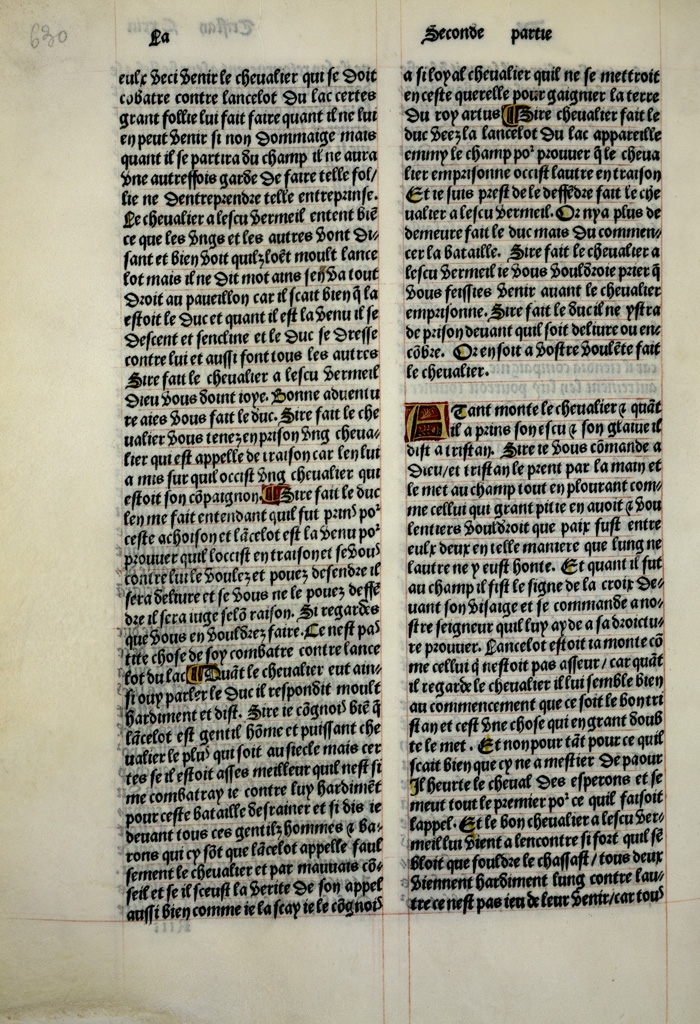 630
La Seconde partie
eulx Veci Venir le cheualier qui se Doit
cõbatre contre lancelot Du lac certes
grant follie lui fait faire quant il ne lui
en peut Venir si non Dommaige mais
quant il se partira du champ il ne aura
Vne autreffois garde De faire telle fol/
lie ne Dentreprendre telle entreprinse.
Le cheualier a lescu Vermeil entent biẽ
ce que les Vngs et les autres Vont Di-
sant et bien Voit quilz loẽt moult lance
lot mais il ne Dit mot ains sen Va tout
Droit au paueillon car il scait bien q̃ la
estoit le Duc et quant il est la Venu il se
Descent et sencline et le Duc se Dresse
contre lui et aussi font tous les autres
Sire fait le cheualier a lescu Vermeil
Dieu Vous doint ioye. Bonne aduentu
re aies Vous fait le duc. Sire fait le che
ualier Vous tenez en prison Vng cheua-
lier qui est appelle de traison car len lui
a mis sur quil occist Vng cheualier qui
estoit son cõpaignon. Sire fait le duc
len me fait entendant quil fut prinˀ poˀ
ceste achoison et lãcelot est la Venu poˀ
prouuer quil loccist en traison et se Vouˀ
contre lui le Voulez et pouez desendre il
sera deliure et se Vous ne le pouez deffẽ
dre il sera iuge selõ raison. Si regardes
que Vous en Vouldrez faire. Ce nest paˀ
tite chose de soy combatre contre lance
lot du lac Quãt le cheualier eut ain-
si ouy parler le Duc il respondit moult
hardiment et dist. Sire ie cõgnoiˀ biẽ q̃
lãcelot est gentil hõme et puissant che
ualier le pluˀ qui soit au siecle mais cer
tes se il estoit asses meilleur quil nest si
me combatray ie contre luy hardimẽt
pour ceste bataille desrainer et si dis ie
deuant tous ces gentilz hommes ⁊ ba-
rons qui cy sõt que lãcelot appelle faul
sement le cheualier et par mauuais cõ-
seil et se il sceust la Verite De son appel
aussi bien comme ie la scay ie le cõgnoiˀ
a si loyal cheualier quil ne se mettroit
en ceste querelle pour gaignier la terre
Du roy artus Sire cheualier fait le
duc Veez la lancelot Du lac appareille
emmy le champ poˀ prouuer q̃ le cheua
lier emprisonne occist lautre en traison
Et ie suis prest de le deffẽdre fait le che
ualier a lescu Vermeil. Or nya plus de
demeure fait le duc mais Du commen-
cer la bataille. Sire fait le cheualier a
lescu Vermeil ie Vous Vouldroie prier q̃
Vous feissies Venir auant le cheualier
emprisonne. Sire fait le duc il ne ystra
de prison deuant quil soit deliure ou en-
cõbre. Or en soit a Vostre Voulẽte fait
le cheualier.
A Tant monte le cheualier ⁊ quãt
il a prins son escu ⁊ son glaiue il
dist a tristan. Sire ie Vous cõmande a
Dieu/et tristan le prent par la main et
le met au champ tout en plourant com-
me cellui qui grant pitie en auoit ⁊ Vou
lentiers Vouldroit que paix fust entre
eulx deux en telle maniere que lung ne
lautre ne y eust honte. Et quant il fut
au champ il fist le signe de la croix De-
uant son Visaige et se commande a no-
stre seigneur quil luy ayde a sa droictu-
re prouuer. Lancelot estoit ia monte cõ
me cellui q̃ nestoit pas asseur/car quãt
il regarde le cheualier il lui semble bien
au commencement que ce soit le bon tri
stan et cest Vne chose qui en grant doub
te le met. Et non pour tãt pour ce quil
scait bien que cy ne a mestier De paour
Il heurte le cheual Des esperons et se
meut tout le premier poˀ ce quil faisoit
lappel. Et le bon cheualier a lescu Ver-
meil lui Vient a lencontre si fort quil sẽ
bloit que fouldre le chassast/tous deux
Viennent hardiment lung contre lau-
tre ce nest pas ieu de leur Venir/car touˀ